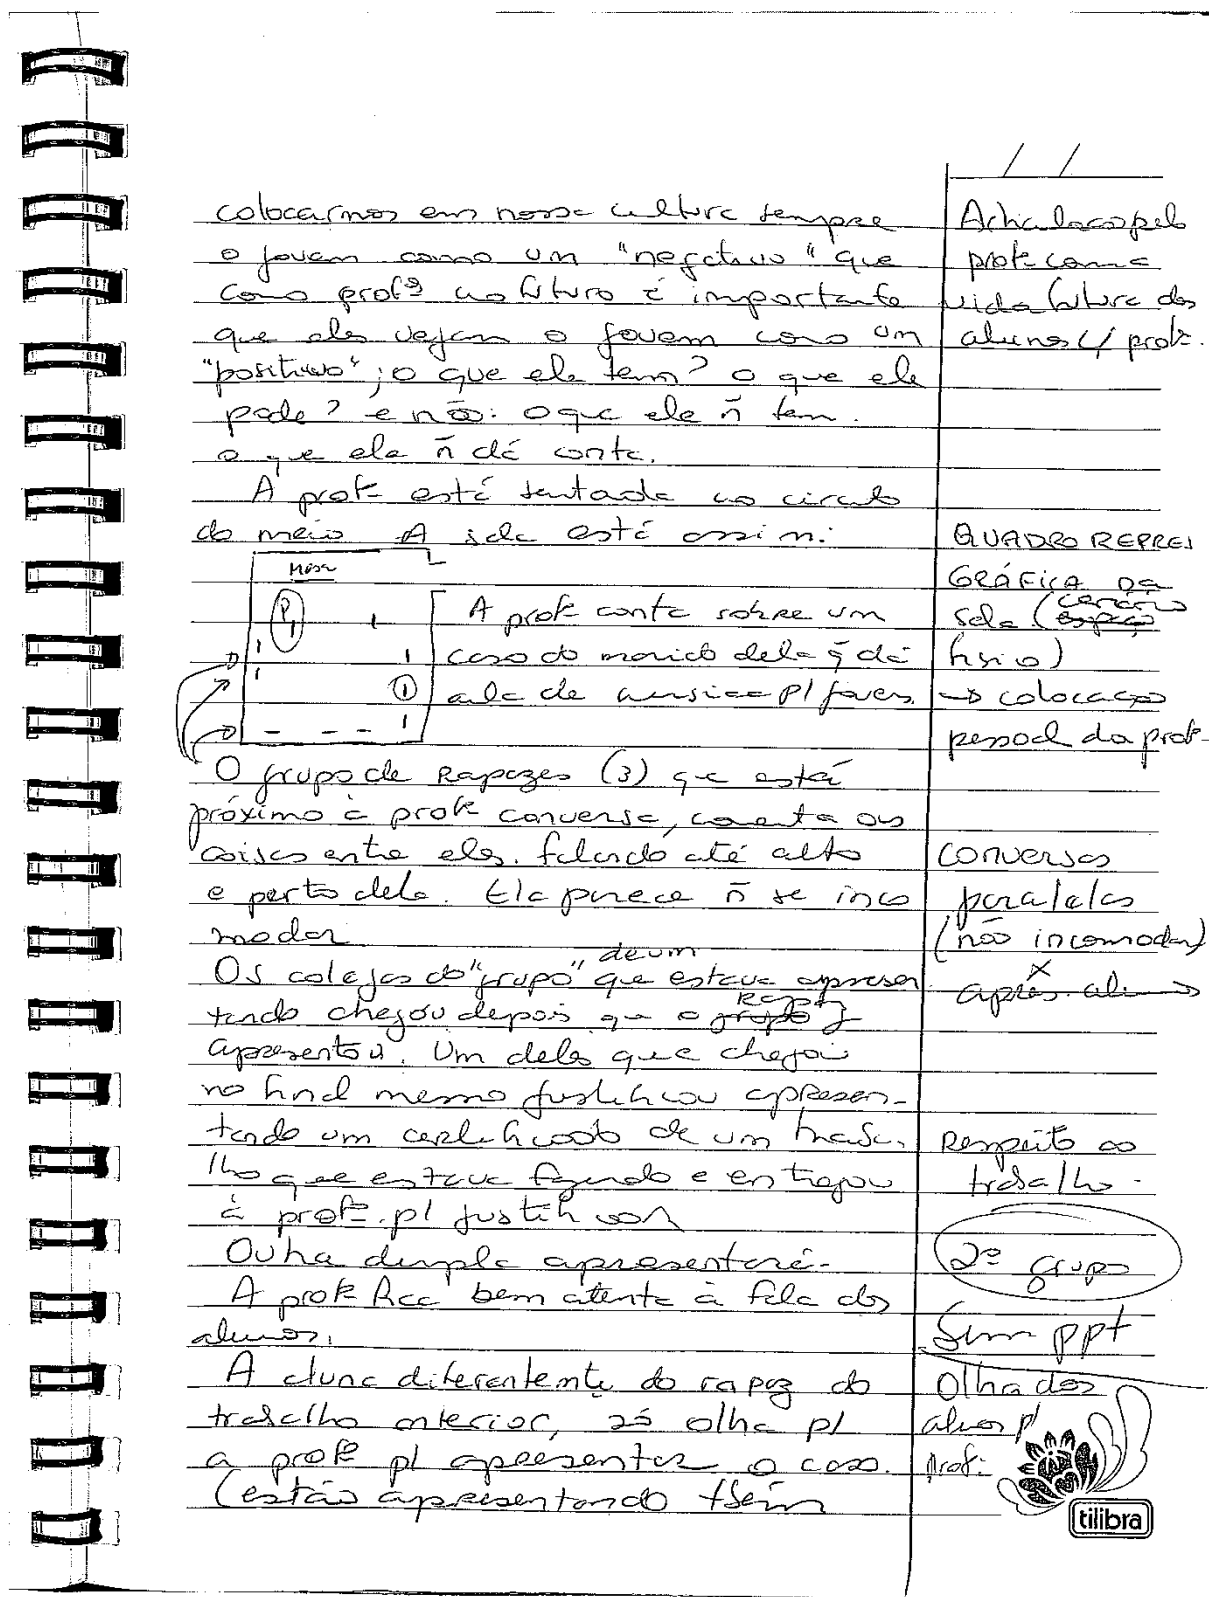 colocarmos em nossa cultura sempre
o jovem como um "negativo" que
como profª no futuro é importante
que eles vejam o jovem como um
"positivo"; o que ele tem? o que ele
pode? e não: o que ele ñ tem.
o que ele ñ dá conta.
A profª está sentada no circulo
do meio A sala está assim:
Mesa
P
A profª conta sobre um
caso do marido dela q̃ dá
aula de musica p/ jovens.
O grupo de Rapazes (3) que está
próximo à profª conversa, comenta as
coisas entre eles. falando até alto
e perto dela. Ela parece ñ se inco
modar
Os colegas do "grupo" de um que estava apresen
tando chegou depois que o grupo
apresentou. Um deles que chegou
no final mesmo justificou apresen-
tando um certificado de um traba-
lho que estava fazendo e entregou
à profª. p/ justificar
Outra dupla apresentará.
A profª fica bem atenta à fala dos
alunos.
A aluna diferentemente do rapaz do
trabalho anterior, só olha p/
a profª p/ apresentar o caso.
(estão apresentando tbém
/ /
pela
profª com a
vida futura dos
alunos c/ profª.
QUADRO REPRES
GRÁFICA DA
sala (espaço cenário
físico)
→ colocação
pessoal da profª
conversas
paralelas
(não incomodar)
x
após. alu
Respeito ao
trabalho.
2º grupo
Sem ppt
Olha dos
alunos p/
profª
tilibra